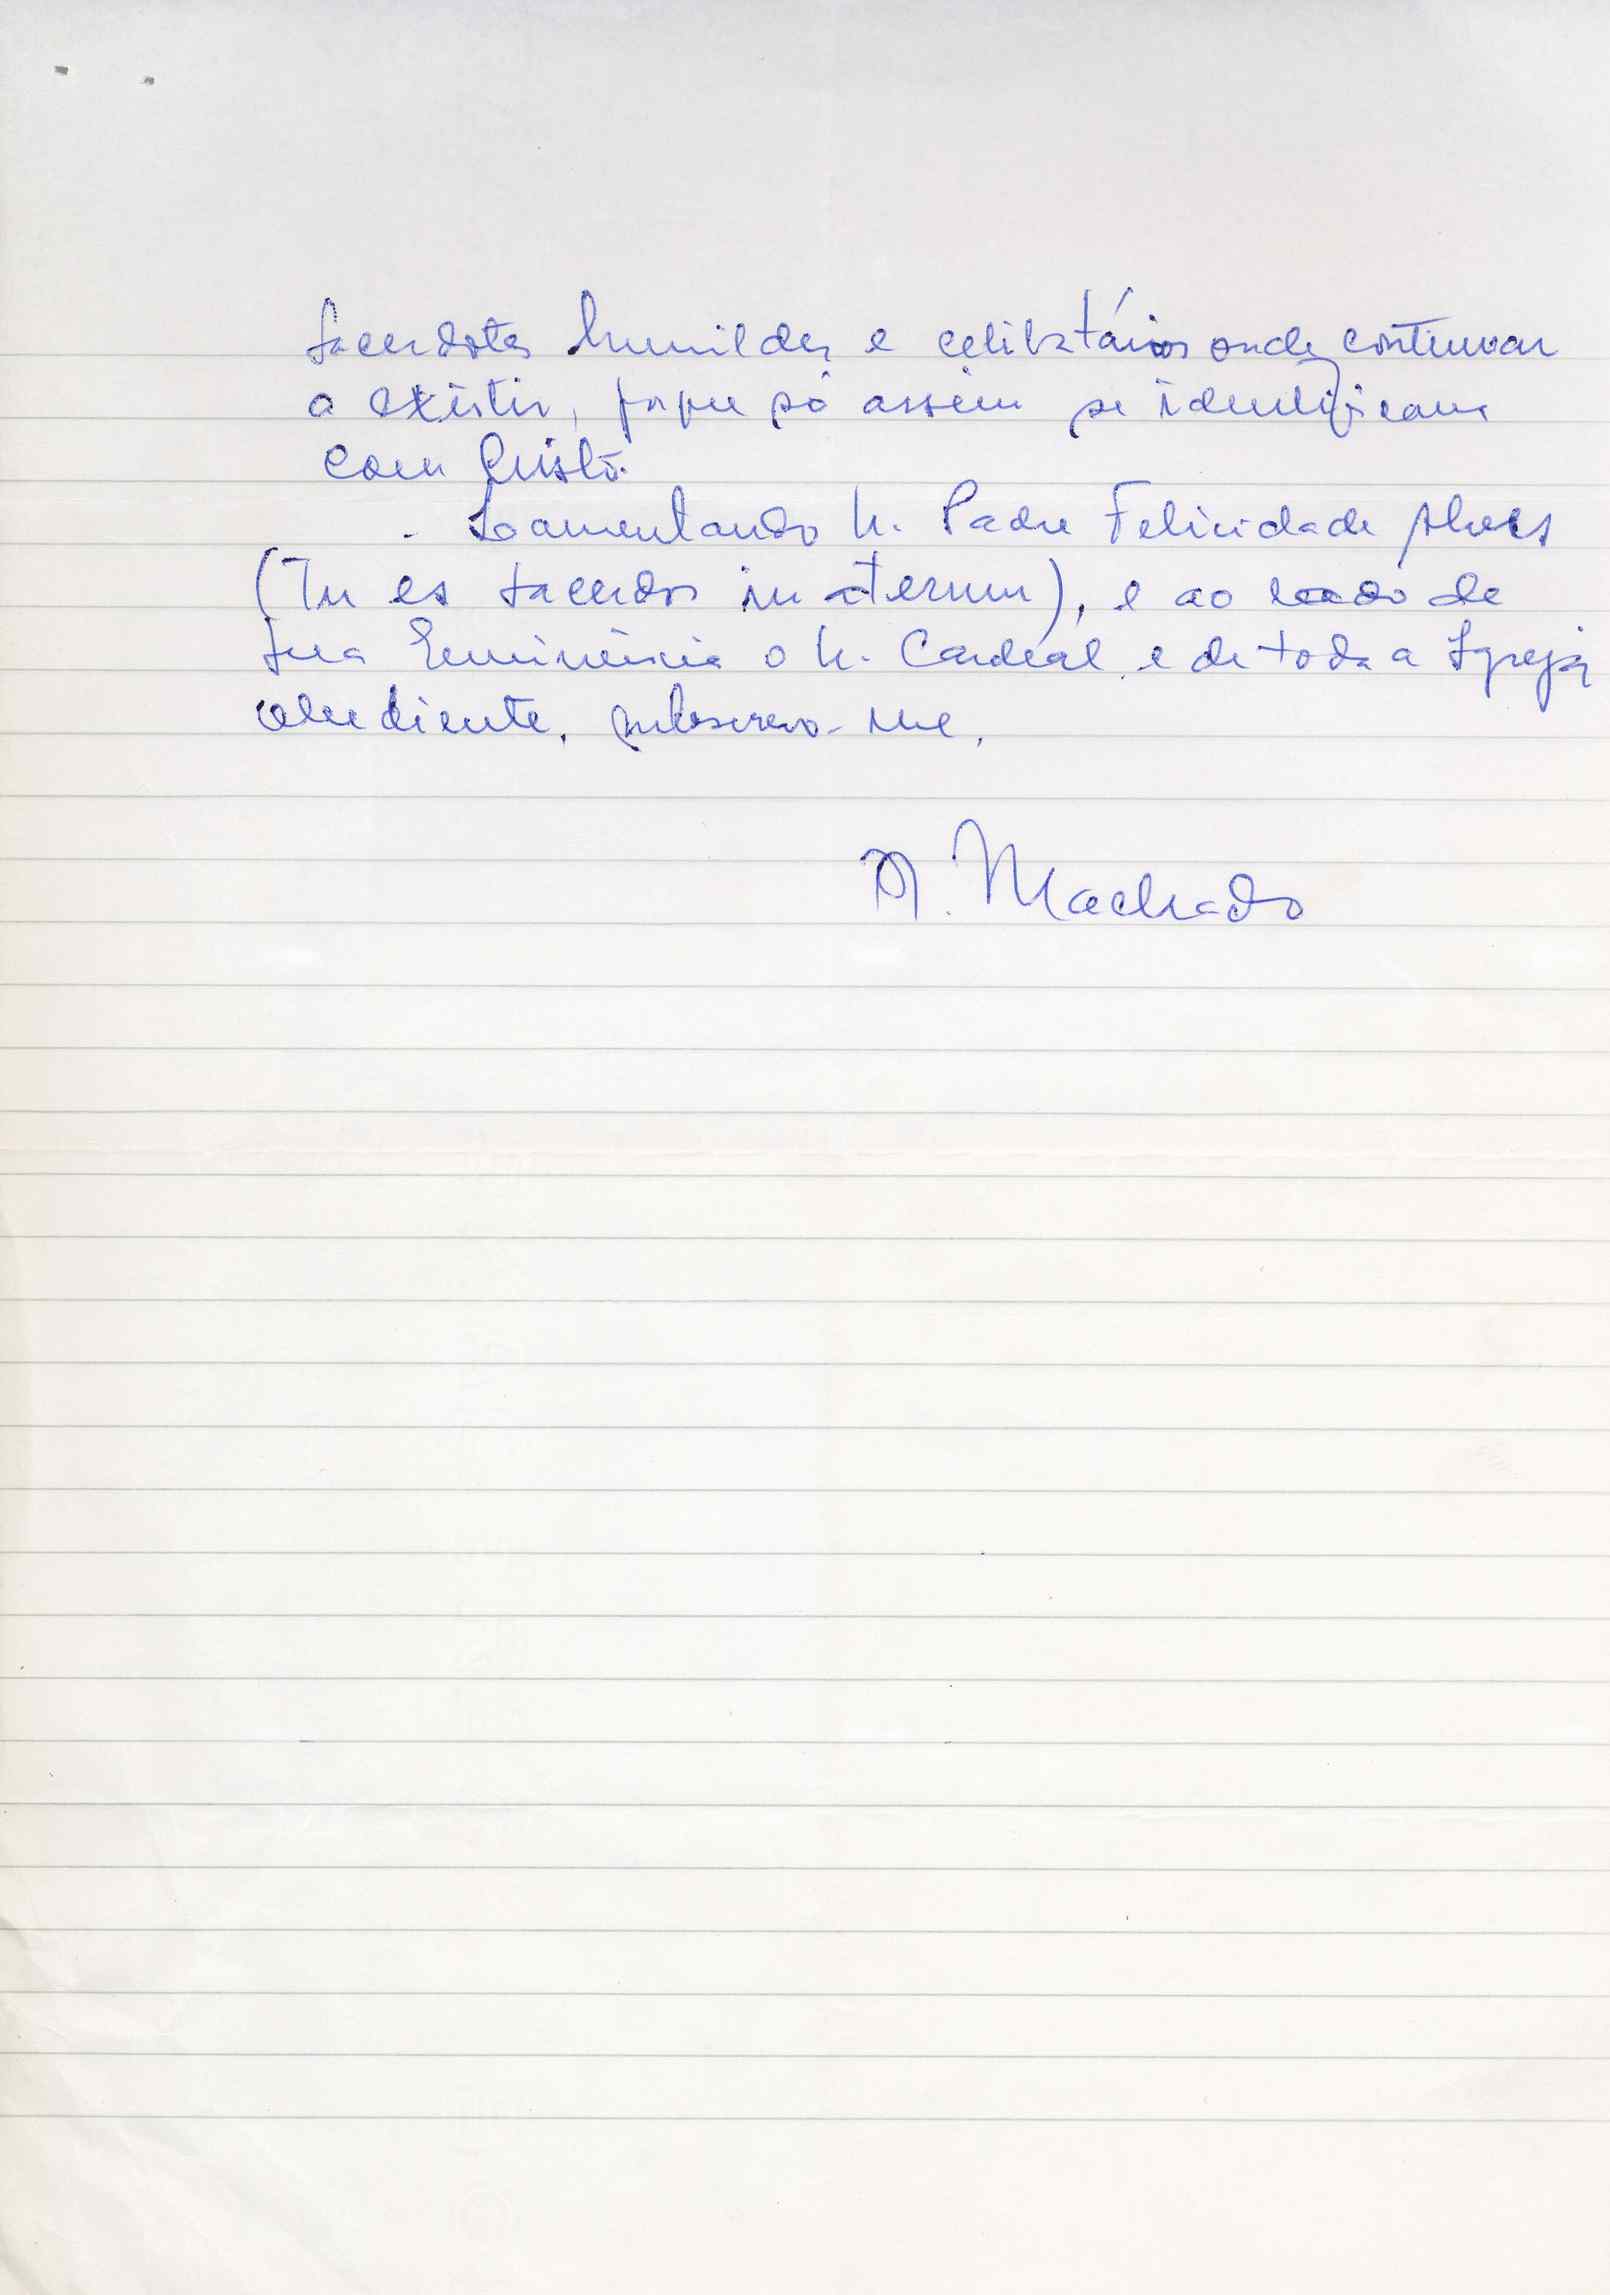 Sacerdotes humildes e celibatários onde continuar
a existir, porque só assim se identificam
com Cristo.
- Lamentando Sr. Padre Felicidade Alves
(Tu es sacerdos in aeternum), e ao lado de
Sua Eminência o Sr. Cardeal e de toda a Igreja
obediente, subscrevo-me,
A. Machado